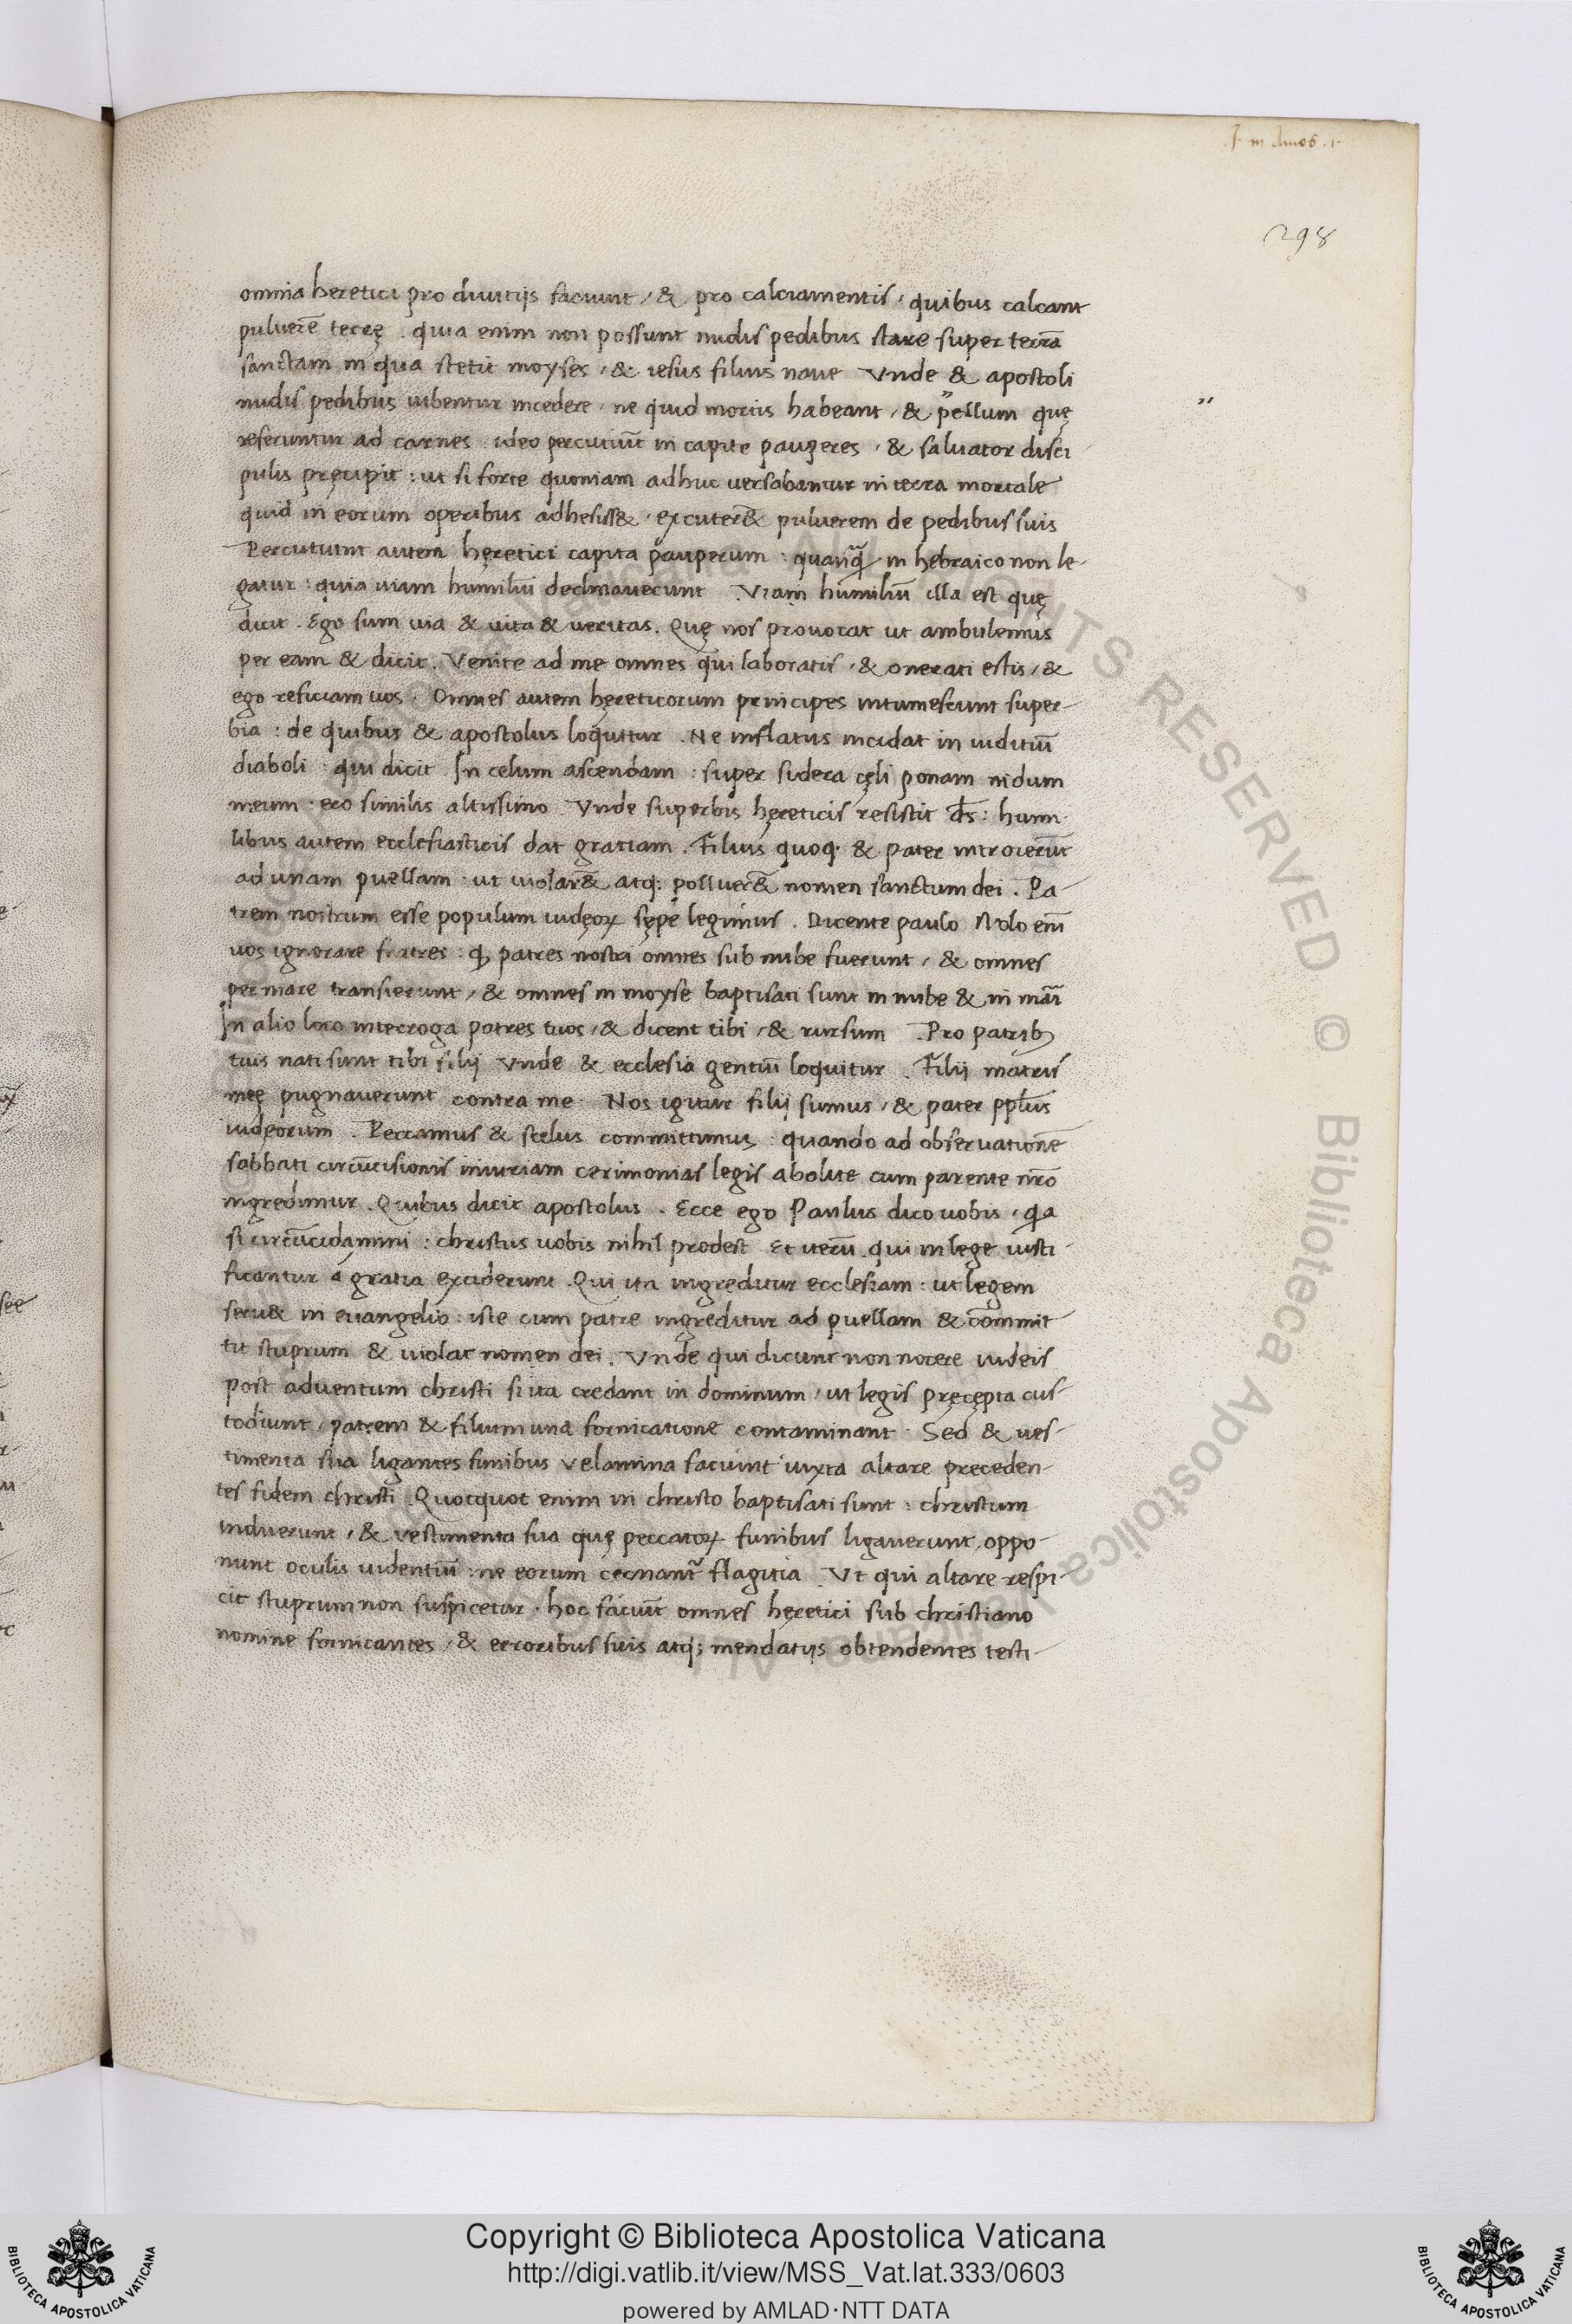 298
omnia heretici pro diuitijs faciunt, & pro calciamentis, quibus calcant
puluerē terrę. quia enim non possunt nudis pedibus stare super terrā
sanctam in qua stetit moyses, & iesus filius naue Vnde & apostoli
nudis pedibus iubentur incedere, ne quid mortis habeant, & pellium quę
referuntur ad carnes. ideo percutiūt in capite pauperes, & saluator disci-
pulis pręcipit: ut si forte quoniam adhuc uersabantur in terra mortale
quid in eorum operibus adhesiss&, excuter& puluerem de pedibus suis
Percutiunt autem hęretici capita pauperum: quanq̄ in hebraico non le-
gatur: quia uiam humiliū declinauerunt. Viam humiliū illa est quę
dicit. Ego sum uia & uita & ueritas. Quę nos prouocat ut ambulemus
per eam & dicit. Venite ad me omnes qui laboratis, & onerati estis, &
ego reficiam uos. Omnes autem hęreticorum principes intumescunt super-
bia: de quibus & apostolus loquitur. Ne inflatus incidat in iuditiū
diaboli: qui dicit In celum ascendam: super sidera cęli ponam nidum
meum: ero similis altissimo Vnde superbis hęreticis resistit ds̄: humi-
libus autem ecclesiasticis dat gratiam. Filius quoq; & pater introierūt
ad unam puellam: ut uiolar& atq; polluer& nomen sanctum dei. Pa-
trem nostrum esse populum iudęoꝝ sępe legimus. Dicente paulo Nolo eni̅
uos ignorare fratres: ꝙ patres nostri omnes sub nube fuerunt, & omnes
per mare transierunt, & omnes in moyse baptisati sunt in nube & in mari
In alio loco interroga patres tuos, & dicent tibi, & rursum. Pro patrib;
tuis nati sunt tibi filij Vnde & ecclesia gentiū loquitur. Filij matris
meę pugnauerunt contra me. Nos igitur filij sumus, & pater pplus
iudęorum. Peccamus & scelus committimus: quando ad obseruationē
sabbati circūcisionis iniuriam cerimonias legis abolite cum parente nr̄o
ingredimur. Quibus dicit apostolus. Ecce ego Paulus dico uobis, qa
si circūcidamini: christus uobis nihil prodest Et iterū. qui in lege iusti-
ficantur a gratia exciderunt. Qui ita ingreditur ecclesiam: ut legem
seru& in euangelio: iste cum patre ingreditur ad puellam & commit-
tit stuprum & uiolat nomen dei. Vnde qui dicunt non nocere iudeis
post aduentum christi si ita credant in dominum, ut legis pręcepta cus-
todiunt, patrem & filium una fornicatione contaminant. Sed & ues-
timenta sua ligantes funibus velamina faciunt iuxta altare preceden-
tes fidem christi Quotquot enim in christo baptisati sunt: christum
induerunt, & vestimenta sua quę peccatoꝝ funibus ligauerunt, oppo-
nunt oculis uidentiū: ne eorum cernant̄ flagitia. Vt qui altare respi-
cit stuprum non suspicetur. hoc faciūt omnes hęretici sub christiano
nomine fornicantes, & erroribus suis atq; mendatijs obtendentes testi-
Copyright © Biblioteca Apostolica Vaticana
http://digi.vatlib.it/view/MSS_Vat.lat.333/0603
powered by AMLAD·NTT DATA
BIBLIOTECA APOSTOLICA VATICANA
BIBLIOTECA APOSTOLICA VATICANA